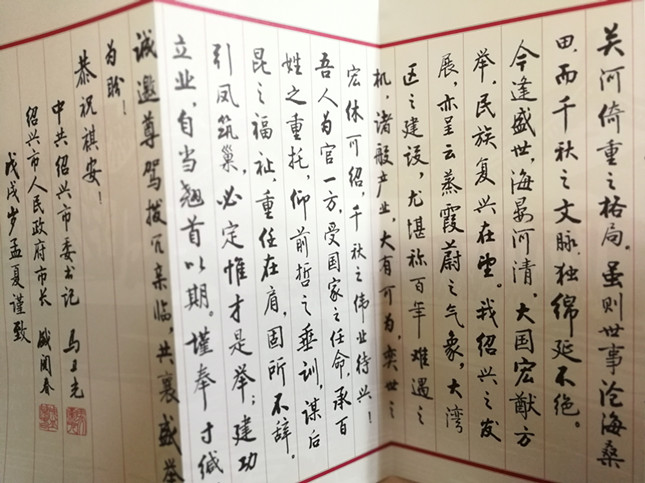 关河倚重之格局，虽则世事沧海桑
田，而千秋之文脉，独绵延不绝。
今逢盛世，海晏河清。大国宏猷方
举，民族复兴在望。我绍兴之发
展，亦呈云蒸霞蔚之气象，大湾
区之建设，尤堪称百年难遇之
机，诸般产业，大有可为，奕世之
宏休可绍，千秋之伟业待兴！
吾人为官一方，受国家之任命，承百
姓之重托，仰前哲之垂训，谋后
昆之福祉，重任在肩，固所不辞。
引凤筑巢，必定惟才是举；建功
立业，自当翘首以期。谨奉寸缄
诚邀尊驾拨冗亲临，共襄盛举
为盼！
恭祝祺安！
中共绍兴市委书记 马卫光
绍兴市人民政府市长 盛阅春
戊戌岁孟夏谨致